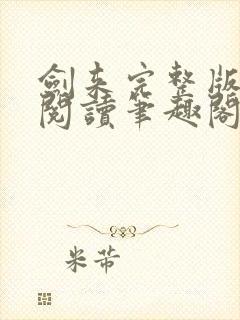 劍来完整版
閱讀筆趣閣
米芾